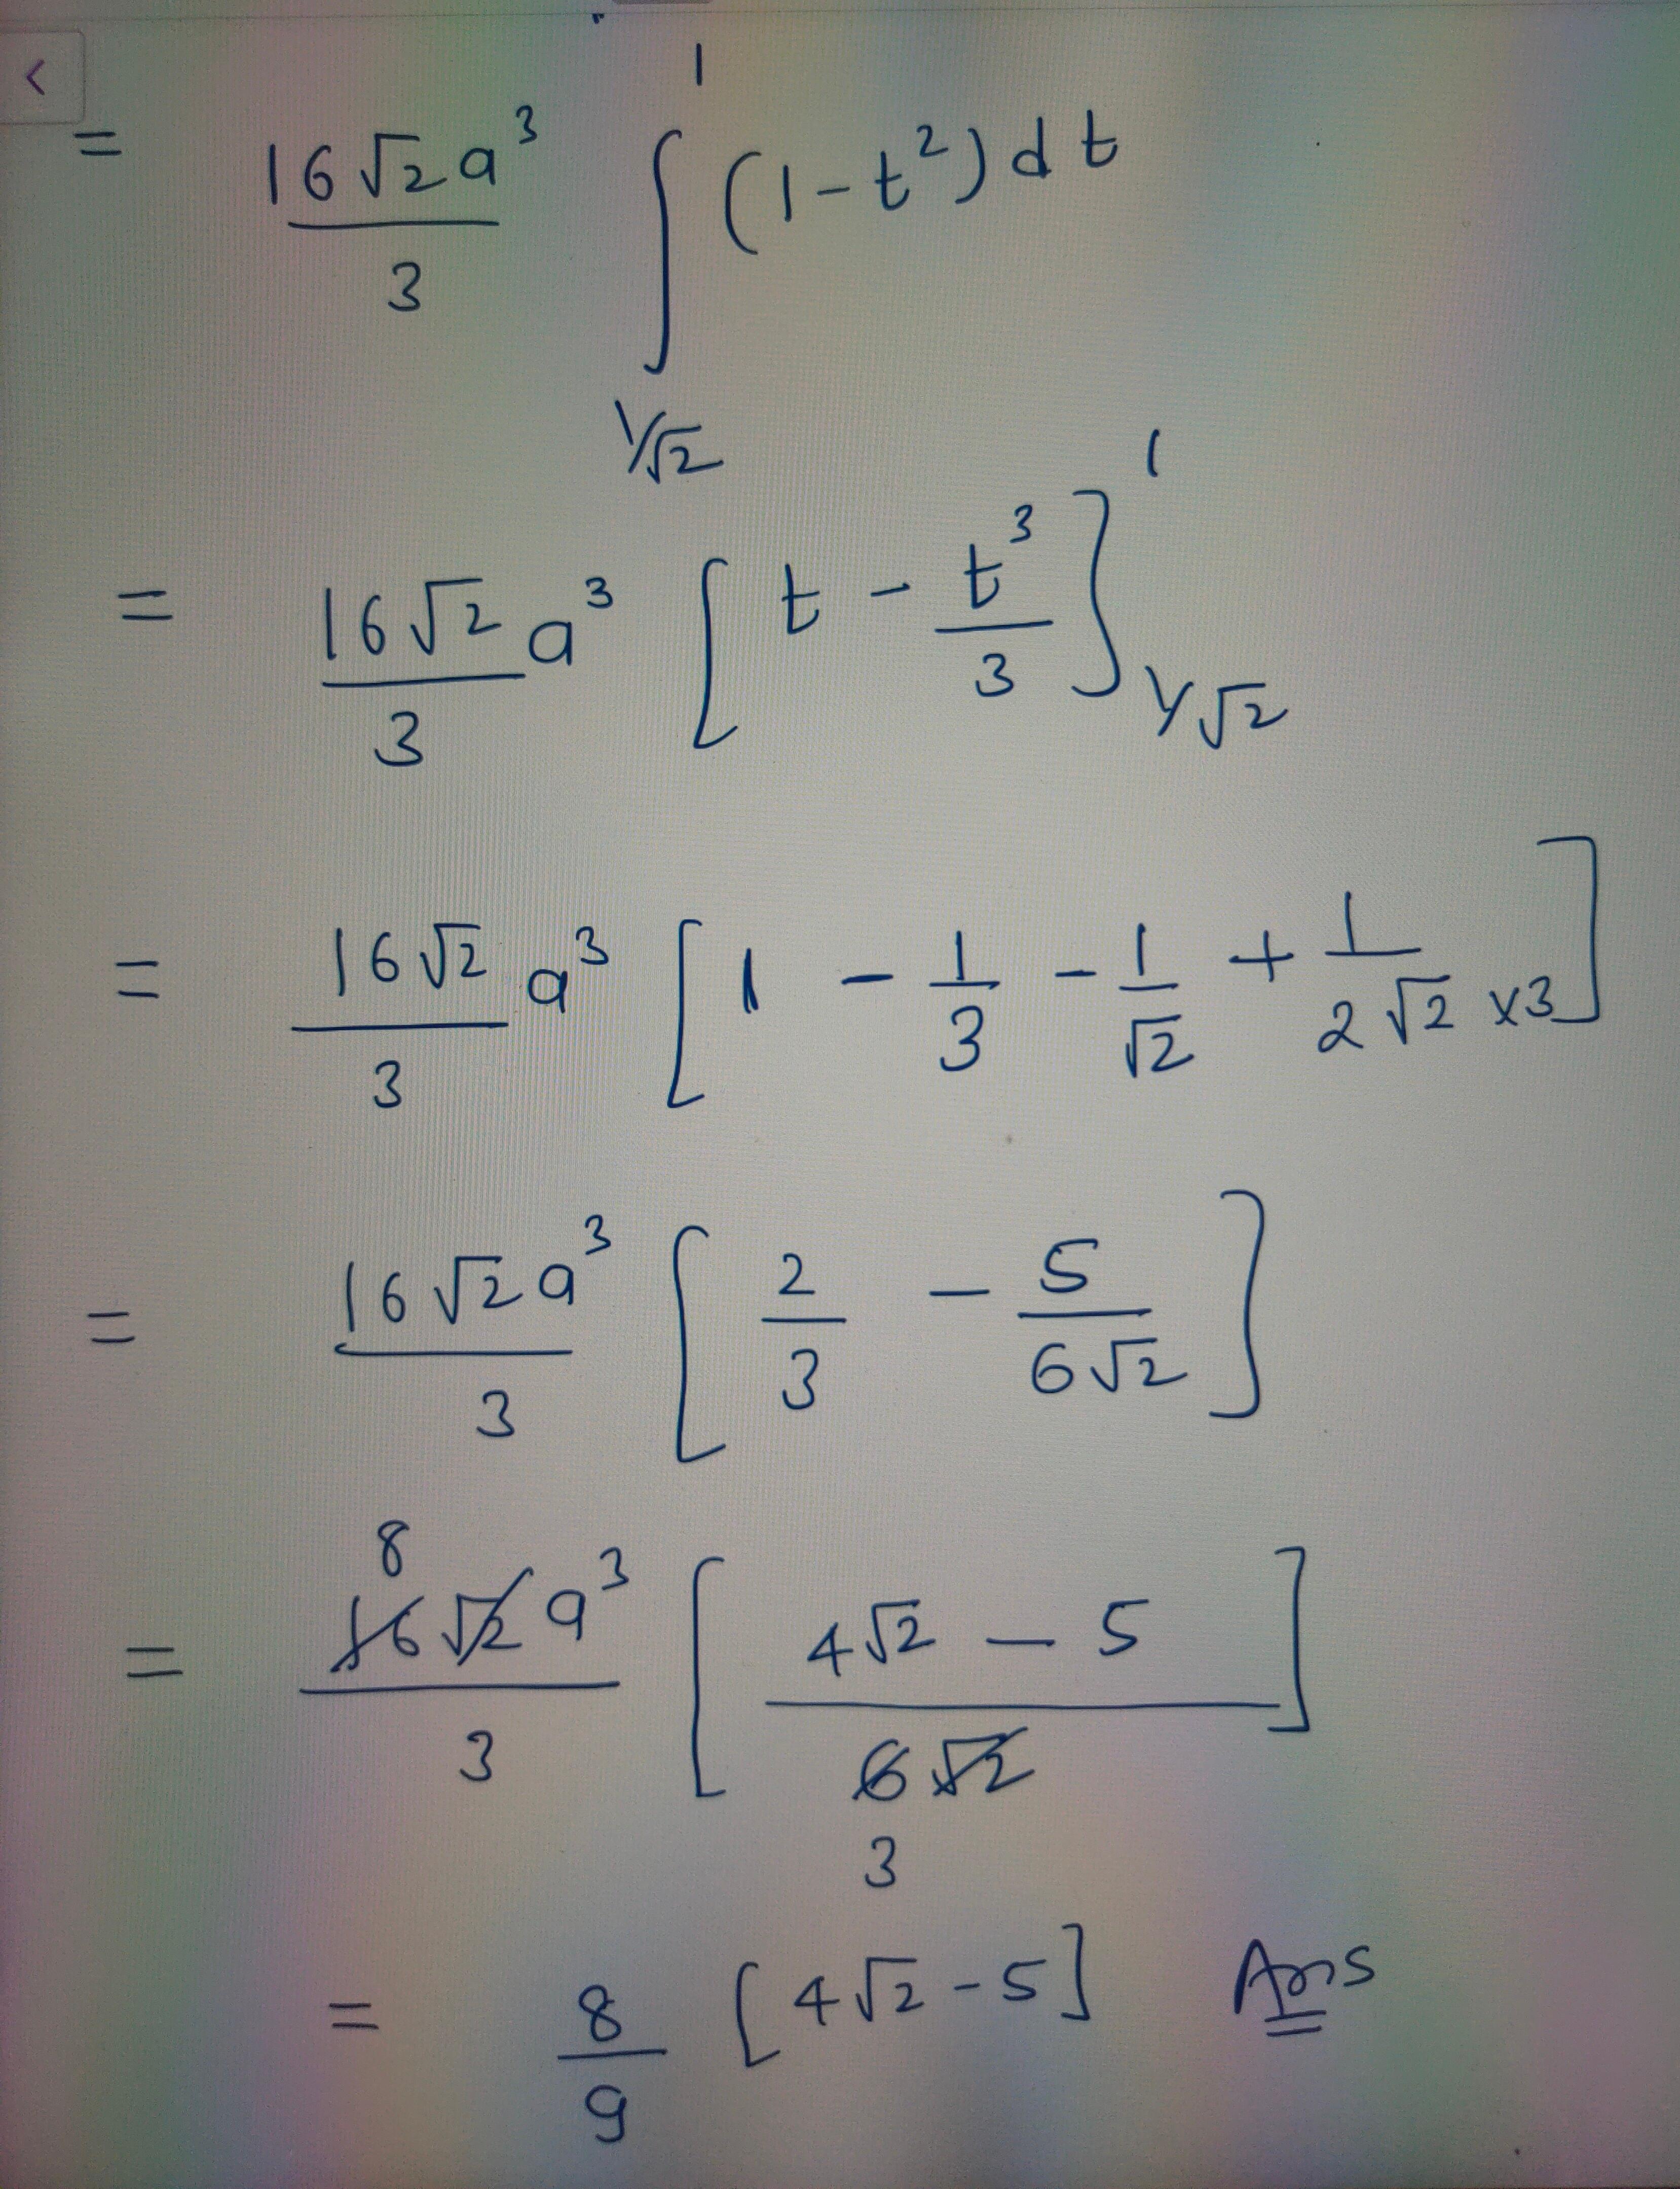 = 16√2 a³ / 3 ∫_{1/√2}^{1} (1 - t²) dt
= 16√2 / 3 a³ [ t - t³/3 ]_{1/√2}^{1}
= 16√2 / 3 a³ [ 1 - 1/3 - 1/√2 + 1/(2√2 ×3) ]
= 16√2 a³ / 3 [ 2/3 - 5/(6√2) ]
8
= 16√2 a³ / 3 [ (4√2 - 5) / 6√2 ]
3
= 8/9 [ 4√2 - 5 ] Ans